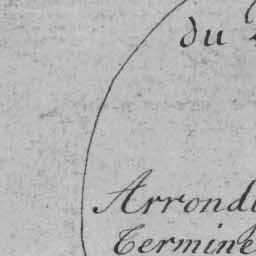 du
Arrondi
Termine